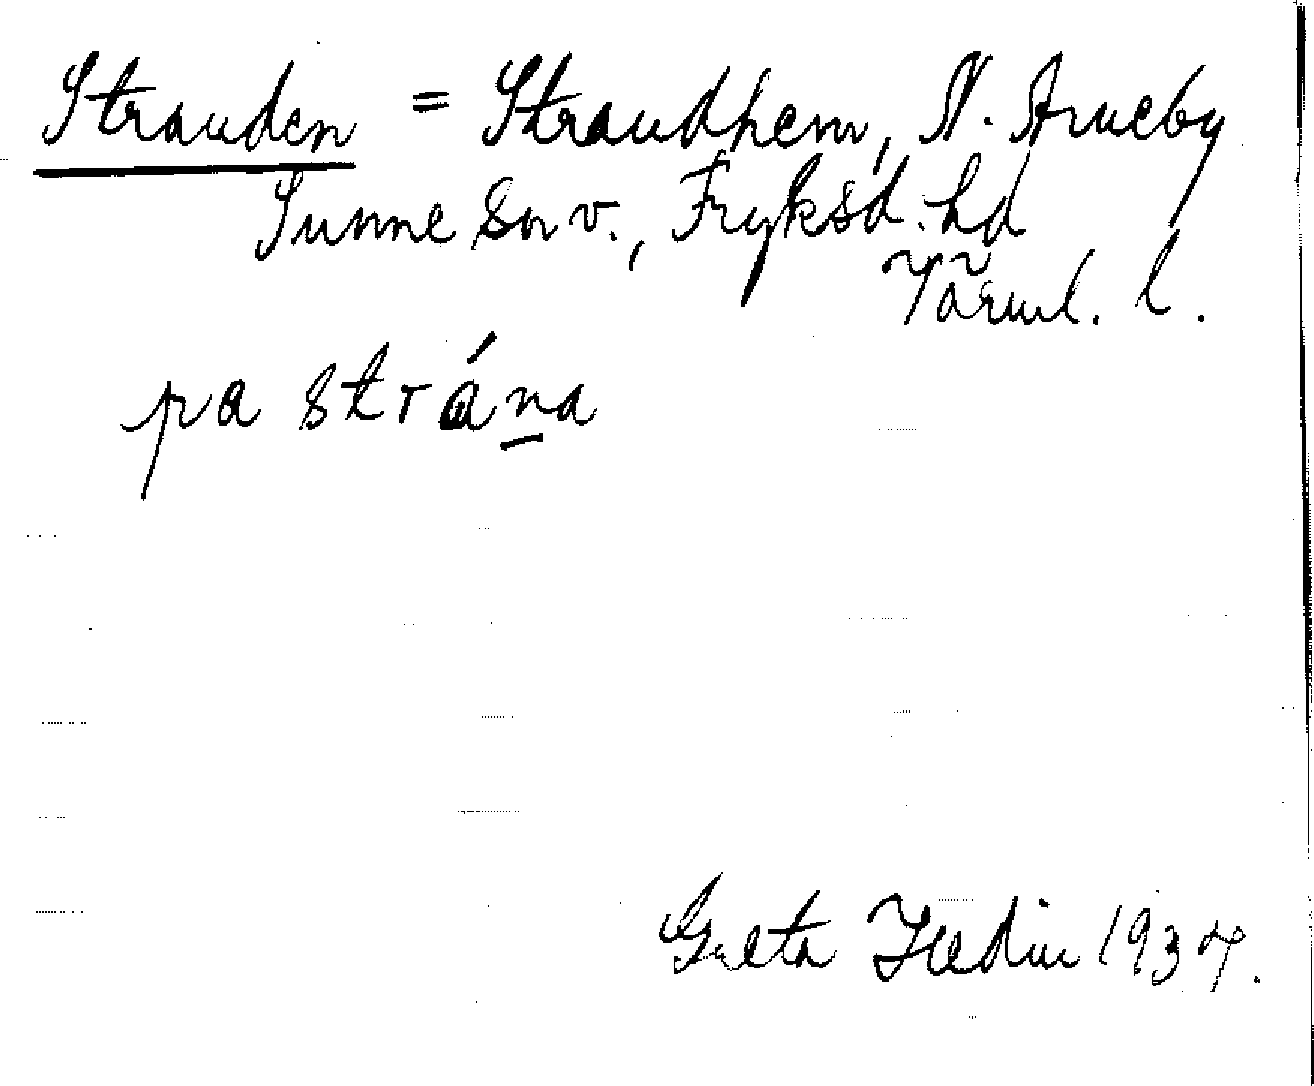 Stranden = Strandhem, N. Arneby
Sunne sn v., Fryksd. hd
Värml. l.
pa strána
Greta Hedin 1937.